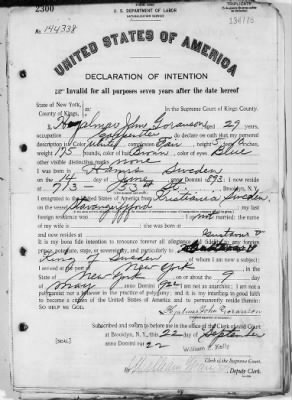 2300
U. S. DEPARTMENT OF LABOR
NATURALIZATION SERVICE
TRIPLICATE
No. 144338
UNITED STATES OF AMERICA
DECLARATION OF INTENTION
Invalid for all purposes seven years after the date hereof
State of New York,
County of Kings, ss:
In the Supreme Court of Kings County.
I, Hjalmar John Goranson, aged 29 years,
occupation Carpenter, do declare on oath that my personal
description is: Color White, complexion Fair, height 5 feet inches,
weight 175 pounds, color of hair Brown, color of eyes Blue
other visible distinctive marks none
I was born in Sweden
on the 14 day of June, anno Domini 1893; I now reside
at 713 - 53rd St., Brooklyn, N. Y.
I emigrated to the United States of America from
on the vessel; my last
foreign residence was; I am not married; the name
of my wife is
and resides at
It is my bona fide intention to renounce forever all allegiance and fidelity to any foreign
prince, potentate, state, or sovereignty, and particularly to Gustave V
King of Sweden, of whom I am now a subject;
I arrived at the port of New York, in the
State of New York, on or about the 9 day
of May, anno Domini; I am not an anarchist; I am not a
polygamist nor a believer in the practice of polygamy; and it is my intention in good faith
to become a citizen of the United States of America and to permanently reside therein:
SO HELP ME GOD.
Hjalmar John Goranson
Subscribed and sworn to before me in the office of the Clerk of said Court
at Brooklyn, N. Y., this 22 day of September
anno Domini 1922
[SEAL]
William E. Kelly
Clerk of the Supreme Court.
By
Deputy Clerk.